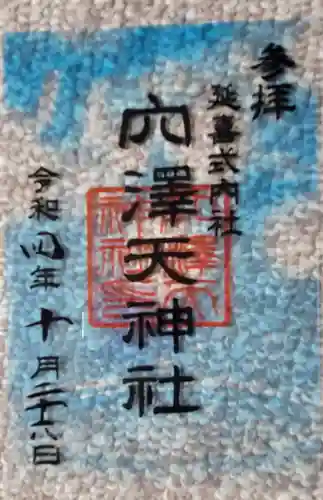 参拝
延喜式内社
穴澤天神社
令和四年十月二十六日